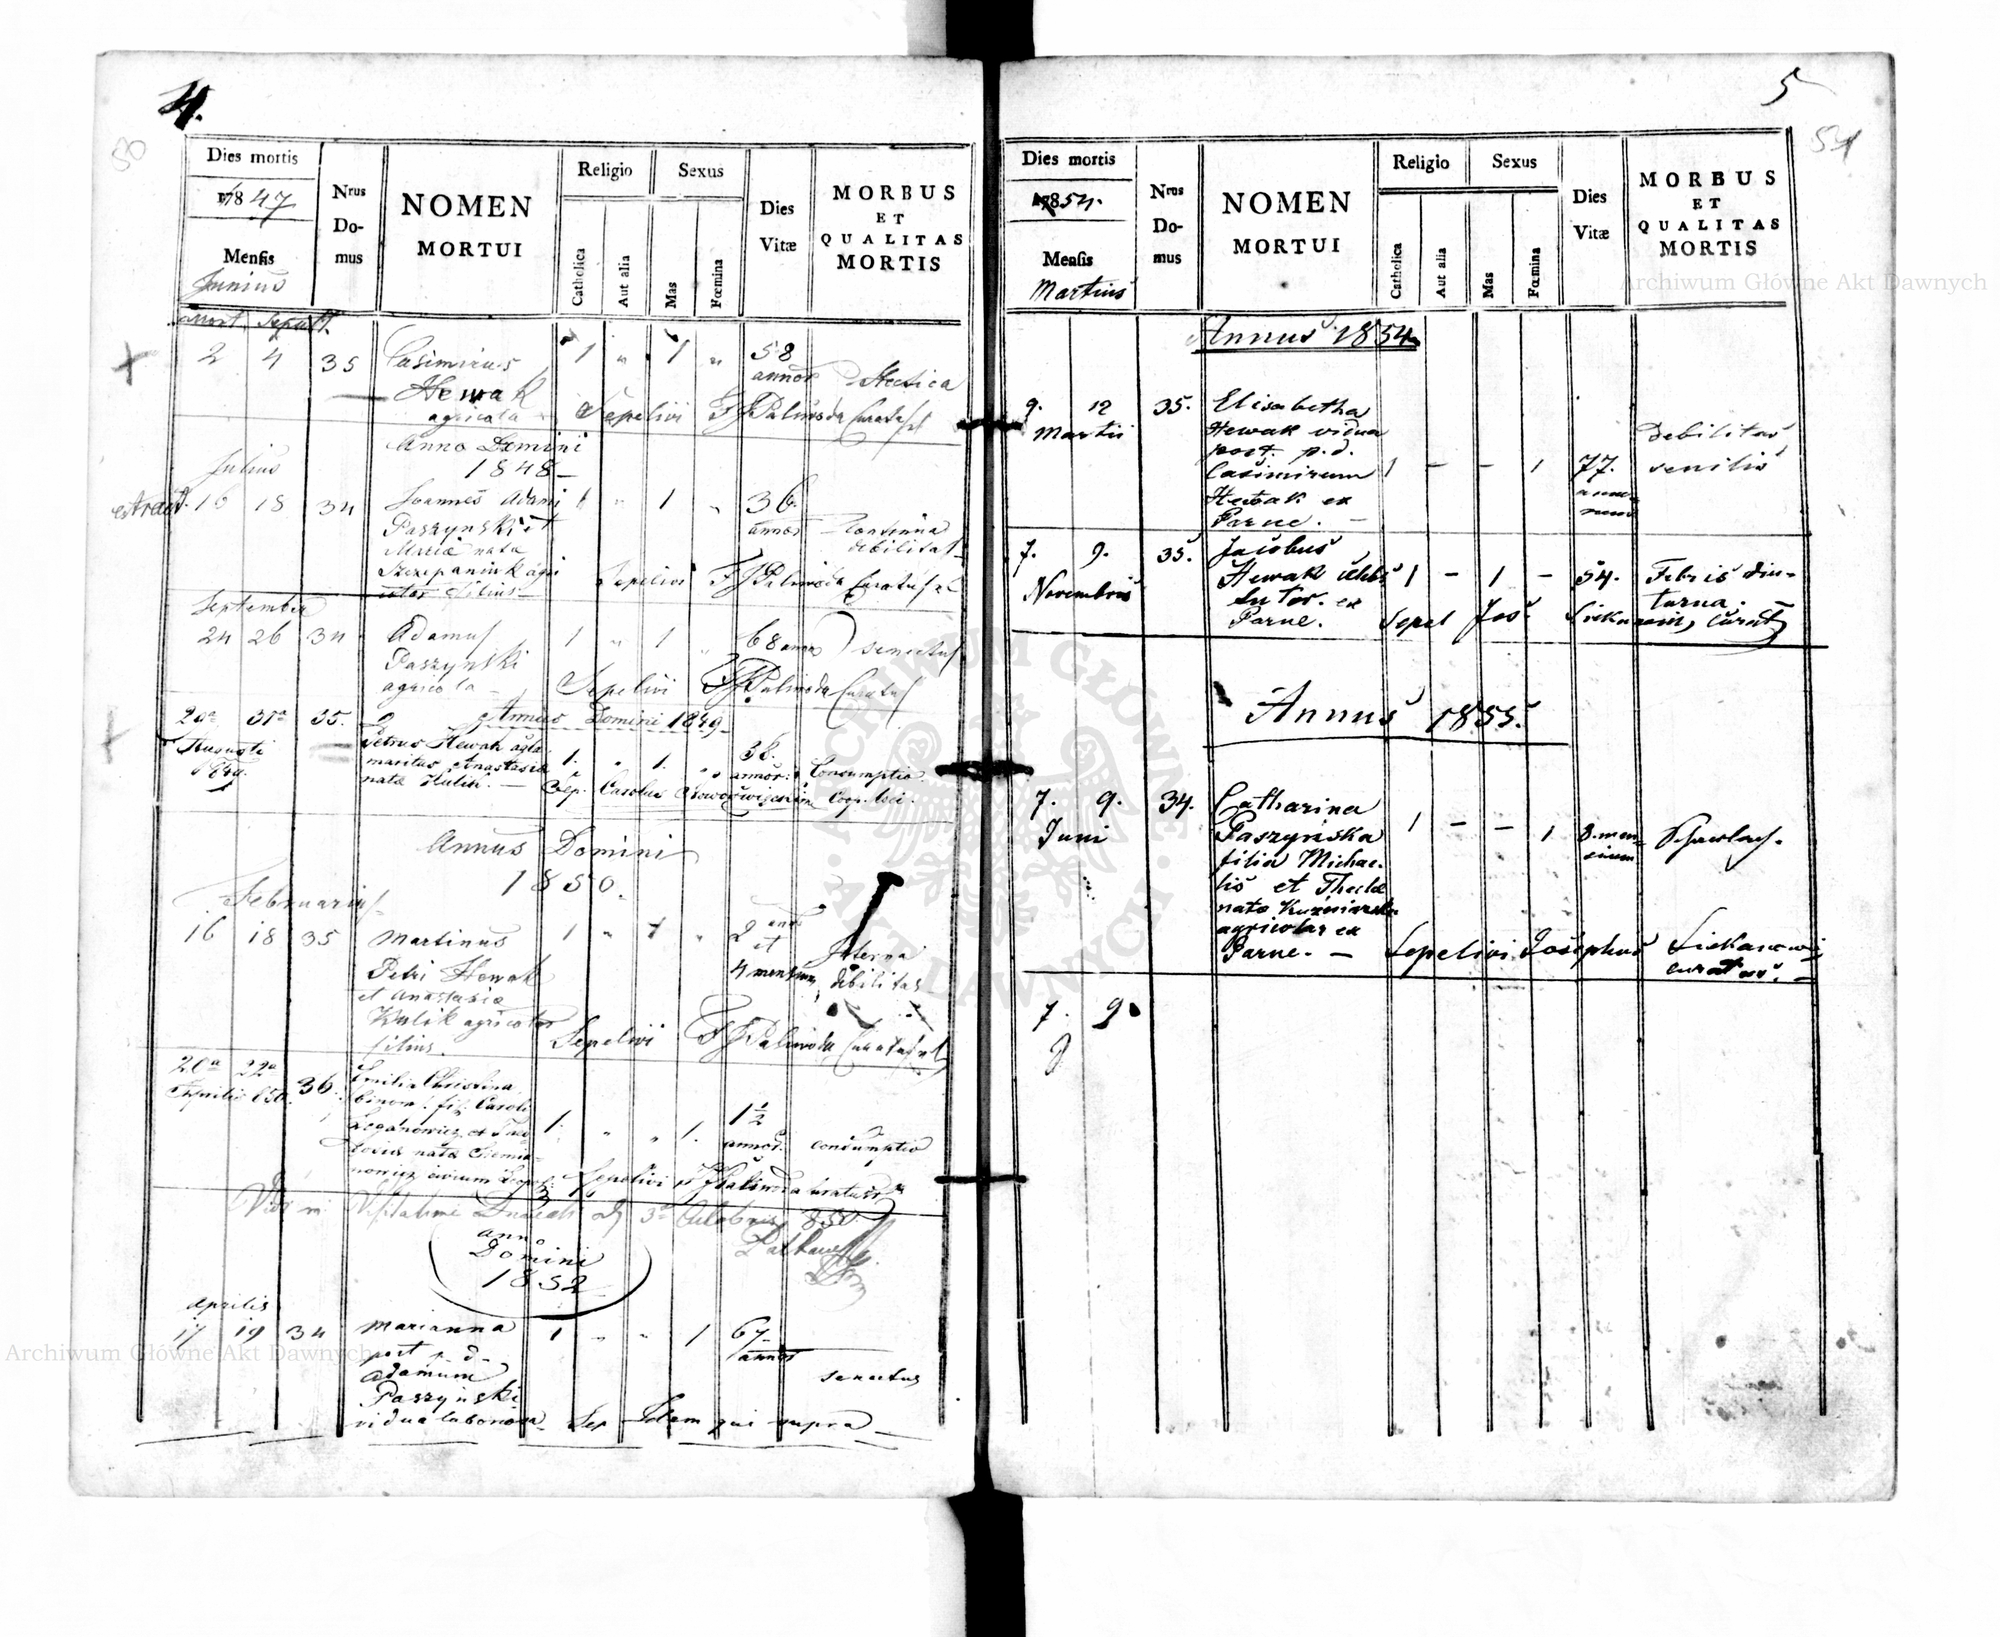 4.
50
Dies mortis
1847
Mensis
Junius
Nrus Domus
NOMEN
MORTUI
Religio
Catholica
Aut alia
Sexus
Mas
Fœmina
Dies
Vitæ
MORBUS
ET
QUALITAS
MORTIS
mort. Sepult.
2 4 35 Casimirus 1 " 1 " 58
annor Hectica
Hewak
agricola Sepelivi FJPalivoda Curatus
Anno Domini
1848
Julius
16 18 34 Joannes Adami 1 " 1 " 36
Paszynski et annor
Maria nata debilitat
Szczepaniuk agri
filius Sepelivi FJPalivoda Curatus
September
24 26 34 Adamus 1 " 1 " 68 annor senectus
Paszynski
agricola Sepelivi FJPalivoda Curatus
29a 31a 35. Annus Domini 1849
Augusti
Petrus Hewak
maritus Anastasia 1. " 1. " annor. Consumptio.
nata Kulik. Sep. Carolus Coop. loci.
Annus Domini
1850.
Februarius
16 18 35 Martinus 1 " 1 " 2 et
Petri Hewak 4 mensium Interna
et Anastasia debilitas
Kulik agricolar
filius. Sepelivi FJPalivoda Curatus
20a 22a 36. Emilia Christina
Aprilis 850. binom. fil. Caroli
nata 1. " " 1. 1½
annor. consumptio
Sepelivi FJPalivoda Curatus
3a Octobris 850.
Anno
Domini
1852
Aprilis
17 19 34 Marianna 1 " " 1 67
post p. d. annor
Adamum senectus
Paszynski
vidua Sep Idem qui supra
5
51
Dies mortis
1854.
Mensis
Martius
Nrus Domus
NOMEN
MORTUI
Religio
Catholica
Aut alia
Sexus
Mas
Fœmina
Dies
Vitæ
MORBUS
ET
QUALITAS
MORTIS
Annus 1854.
9. 12 35. Elisabetha
Martii Hewak vidua debilitas
post. p. d.
Casimirum 1 – – 1 77. senilis
Hewak ex
Parne. –
7. 9. 35. Jacobus
Novembris Hewak 1 – 1 – 54. Febris diu-
ex turna.
Parne. Sepel Jos.
Annus 1855.
7. 9. 34. Catharina
Juni Paszyńska 1 – – 1 8. men-
filia Michae- sium
lis et Thecla
nata
agricolar ex
Parne. – Sepelivi Josephus
curatus. –
7. 9.
J
Archiwum Główne Akt Dawnych
Archiwum Główne Akt Dawnych
ARCHIWUM GŁÓWNE
AKT DAWNYCH